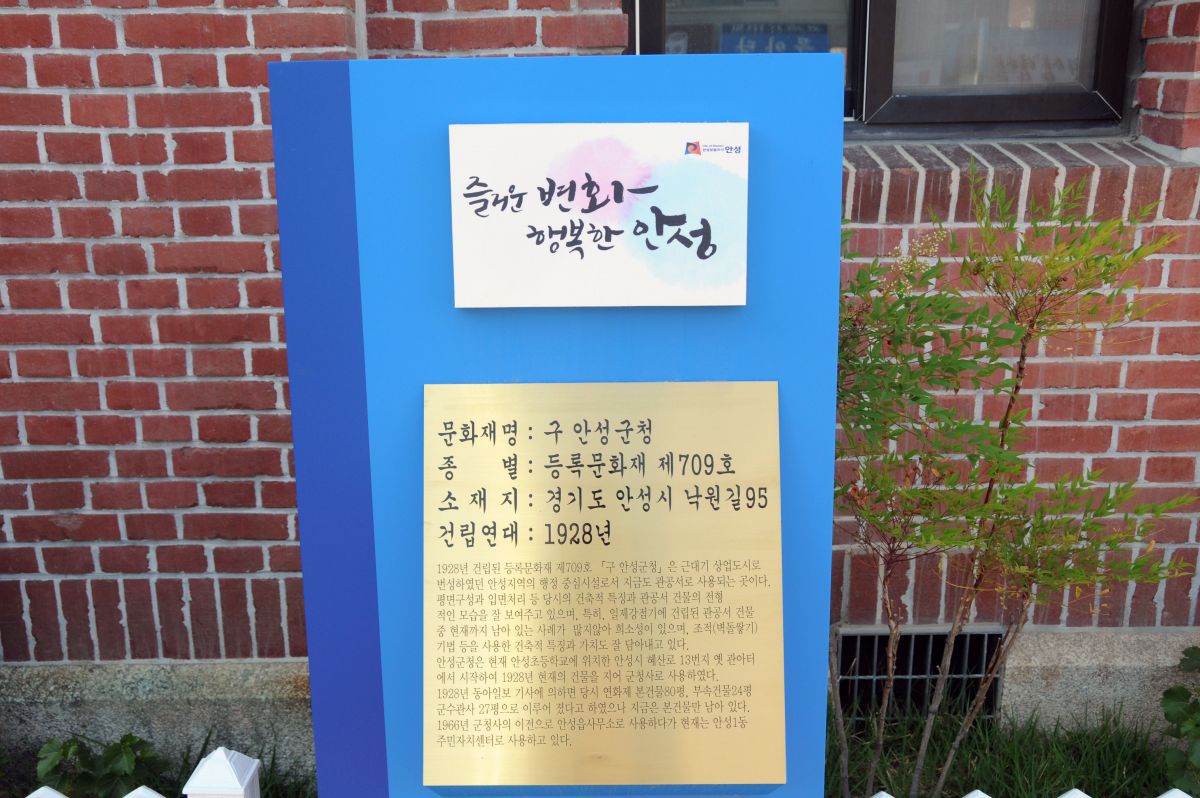 안성
즐거운 변화
행복한 안성
문화재명 : 구 안성군청
종 별 : 등록문화재 제709호
소 재 지 : 경기도 안성시 낙원길95
건립연대 : 1928년
1928년 건립된 등록문화재 제709호 「구 안성군청」은 근대기 상업도시로
번성하였던 안성지역의 행정 중심시설로서 지금도 관공서로 사용되는 곳이다.
평면구성과 입면처리 등 당시의 건축적 특징과 관공서 건물의 전형
적인 모습을 잘 보여주고 있으며, 특히, 일제강점기에 건립된 관공서 건물
중 현재까지 남아 있는 사례가 많지않아 희소성이 있으며, 조적(벽돌쌓기)
기법 등을 사용한 건축적 특징과 가치도 잘 담아내고 있다.
안성군청은 현재 안성초등학교에 위치한 안성시 혜산로 13번지 옛 관아터
에서 시작하여 1928년 현재의 건물을 지어 군청사로 사용하였다.
1928년 동아일보 기사에 의하면 당시 연화제 본건물80평, 부속건물24평
군수관사 27평으로 이루어 졌다고 하였으나 지금은 본건물만 남아 있다.
1966년 군청사의 이전으로 안성읍사무소로 사용하다가 현재는 안성1동
주민자치센터로 사용하고 있다.